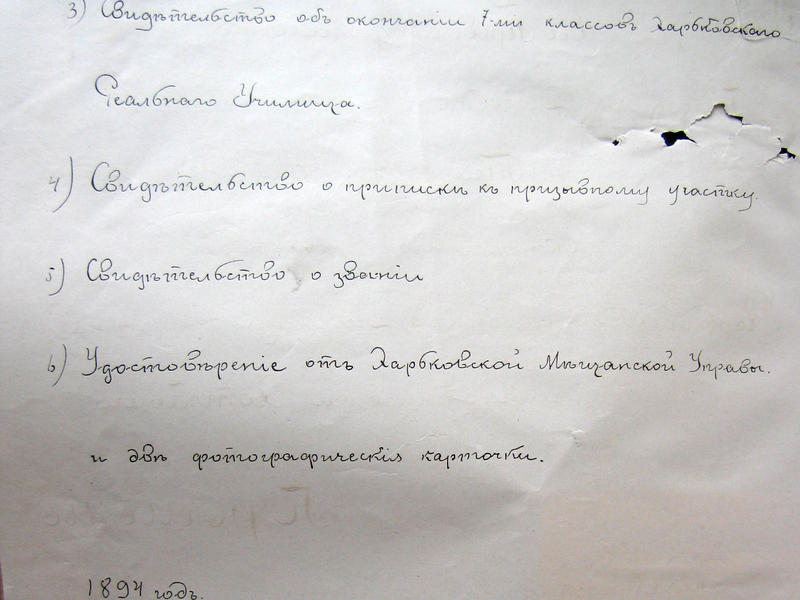 3) Свидѣтельство объ окончаніи 7-ми классовъ Харьковскаго
Реальнаго Училища.
4) Свидѣтельство о припискѣ къ призывному участку.
5) Свидѣтельство о званіи
6) Удостовѣреніе отъ Харьковской Мѣщанской Управы.
и двѣ фотографическія карточки.
1894 годъ.